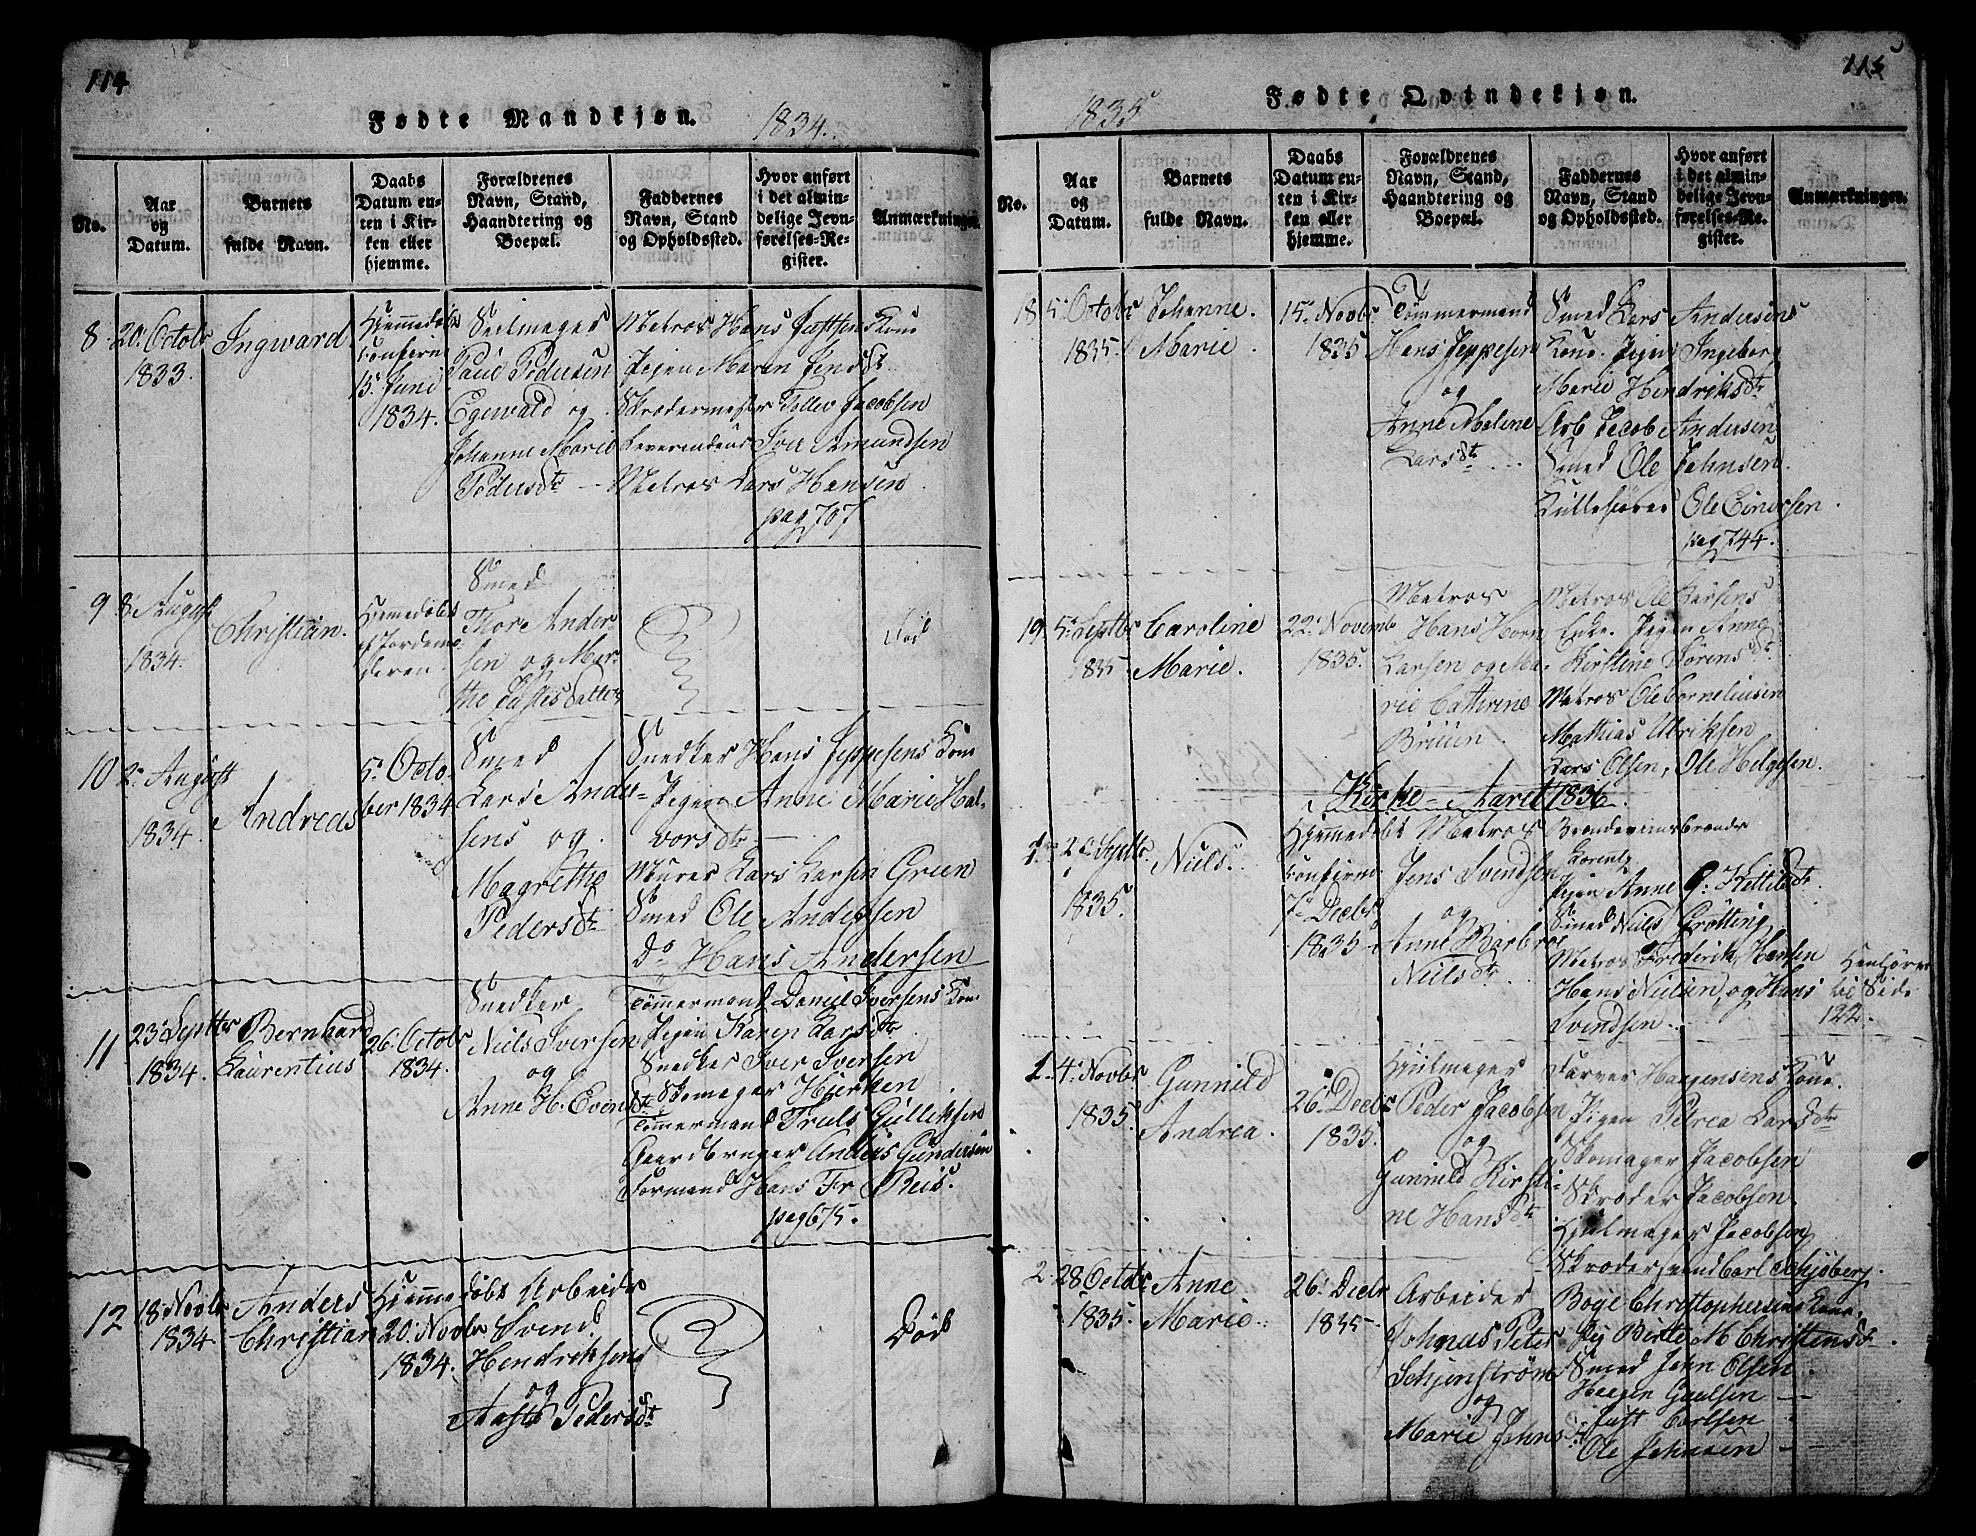 114
Fødte Mandkjøn. 1834.
No.
Aar og Datum.
Barnets fulde Navn.
Daabs Datum enten i Kirken eller hjemme.
Forældrenes Navn, Stand, Haandtering og Boepæl.
Faddernes Navn, Stand og Opholdssted.
Hvor anført i det almindelige Jevnførelses-Register.
Anmærkninger.
8. 20. Octobr 1833.
Ingward
Hjemmedøbt
confirm
15. Juni
1834.
Seilmager
Paul Pedersen
Egewald og
Johanne Marie
Pedersdtr
Matros Hans Justsens Kone
Pigen Maren Jensdtr
Skrædermester Tollev Jacobsen
Leverendeur Iver Amundsen
Matros Lars Hansen
pag 707
9 8. August
1834.
Christian.
Hjemedøbt
af Jordemo-
deren
Smed
Thore Ander
sen og Mar-
the Justes datter
Død
10 2. August
1834.
Andreas
5. Octo-
ber 1834
Smed
Lars Ander-
sens og
Magrethe
Pedersdtr
Snedker Hans Jeppesens Kone
Pigen Anne Marie Hal-
vorsdtr
Murer Lars Larsen Green
Smed Ole Andersen
Do Hans Andersen
11 23. Septbr
1834.
Bernhard
Laurentius
26. Octobr
1834.
Snedker
Niels Iversen
og
Anne H. Evensdtr
Tømmermand Daniel Iversens Kone
Pigen Karen Larsdtr
Snedker Iver Iversen
Skomager Hierken
Tømmermand Truls Gulliksen
Gaardbruger Anders Gundersen
Formand Hans Fr Reis.
pag 675.
12 18. Novbr
1834.
Anders
Christian
Hjemmedøbt
20. Novbr
1834.
Arbeider
Svend
Hendriksen
og
Aaste Pedersdtr
Død
115
1835
Fødte Qvindekjøn.
No.
Aar og Datum.
Barnets fulde Navn.
Daabs Datum enten i Kirken eller hjemme.
Forældrenes Navn, Stand, Haandtering og Boepæl.
Faddernes Navn, Stand og Opholdssted.
Hvor anført i det almindelige Jevnførelses-Register.
Anmærkninger.
18 5. Octobr
1835.
Johanne
Marie
15. Novbr
1835
Tømmermand
Hans Jeppesen
og
Anne Malene
Larsdtr
Smed Lars Andersens
Kone. Pigen Ingeborg
Marie Hendriksdtr
Arb Jacob Andersen
Smed Ole Johnsen.
Kullefører Ole Einersen
pag 744.
19 5. Septbr
1835
Caroline
Marie.
22. Novemb
1835.
Matros
Hans Horn
Larsen og Ma-
rie Cathrine
Bruun.
Matros Ole Larsens
Enke. Pigen Anne
Kirstine Sørensdtr
Matros Ole Corneliusen
Mathias Ulriksen
Lars Olsen, Ole Helgesen.
Kirke-Aaret 1836.
1. Septbr
1835.
Niels.
Hjemmedøbt
confirm
7. Decbr
1835
Matros
Jens Svendsen
og
Anne Barbro
Nielsdtr
Pigen Anne G. Kettilsdtr
Smed Niels Grøtting
Matros Frederik Hansen
Hans Nielsen, og Hans
Svendsen
Henføres
til Side
122.
1. 4. Novbr
1835.
Gunnild
Andrea.
26. Decbr
1835.
Hjulmager
Peder Jacobsen
og
Gunnild Kirsti-
ne Hansdtr
Farver Haagensens Kone.
Pigen Petrea Larsdtr
Skomager Jacobsen
Skræder Jacobsen
Hjulmager Jacobsen
Skrædersvend Carl Schjøberg.
2. 28 Octobr
1835.
Anne
Marie.
26. Decbr
1835.
Arbeider
Johnas Peter
Schjenstrøm
og
Marie Johnsdtr
Boye Christophersens Kone.
Pig Birte M Christensdtr.
Smed John Olsen
Haagen Paulsen
Just Carlsen
Ole Johnsen